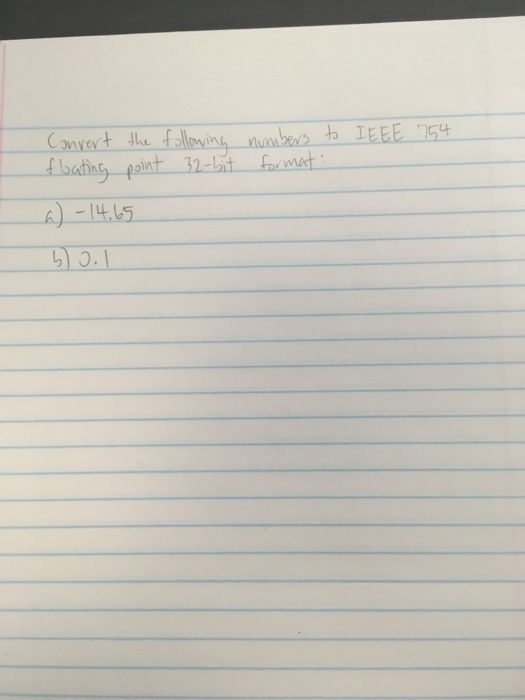 Convert the following numbers to IEEE 754
floating point 32-bit format:
a) -14.65
b) 0.1